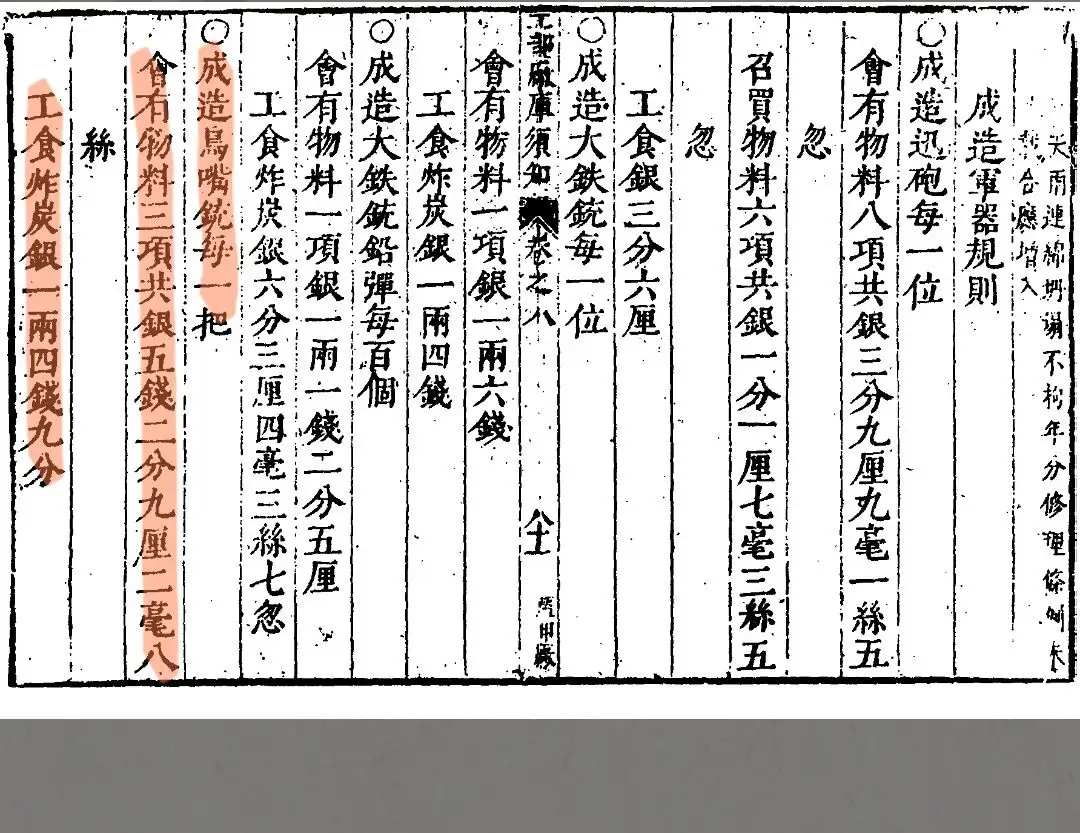 天雨連綿坍塌不拘年分修理條例未
載合應增入
成造軍器規則
○成造迅砲每一位
會有物料八項共銀三分九厘九毫一絲五
忽
召買物料六項共銀一分一厘七毫三絲五
忽
工食銀三分六厘
○成造大鉄銃每一位
工部廠庫須知
卷之八
八十一
盔甲廠
會有物料一項銀一兩六錢
工食炸炭銀一兩四錢
○成造大鉄銃鉛彈每百個
會有物料一項銀一兩一錢二分五厘
工食炸炭銀六分三厘四毫三絲七忽
○成造鳥嘴銃每一把
會有物料三項共銀五錢二分九厘二毫八
絲
工食炸炭銀一兩四錢九分